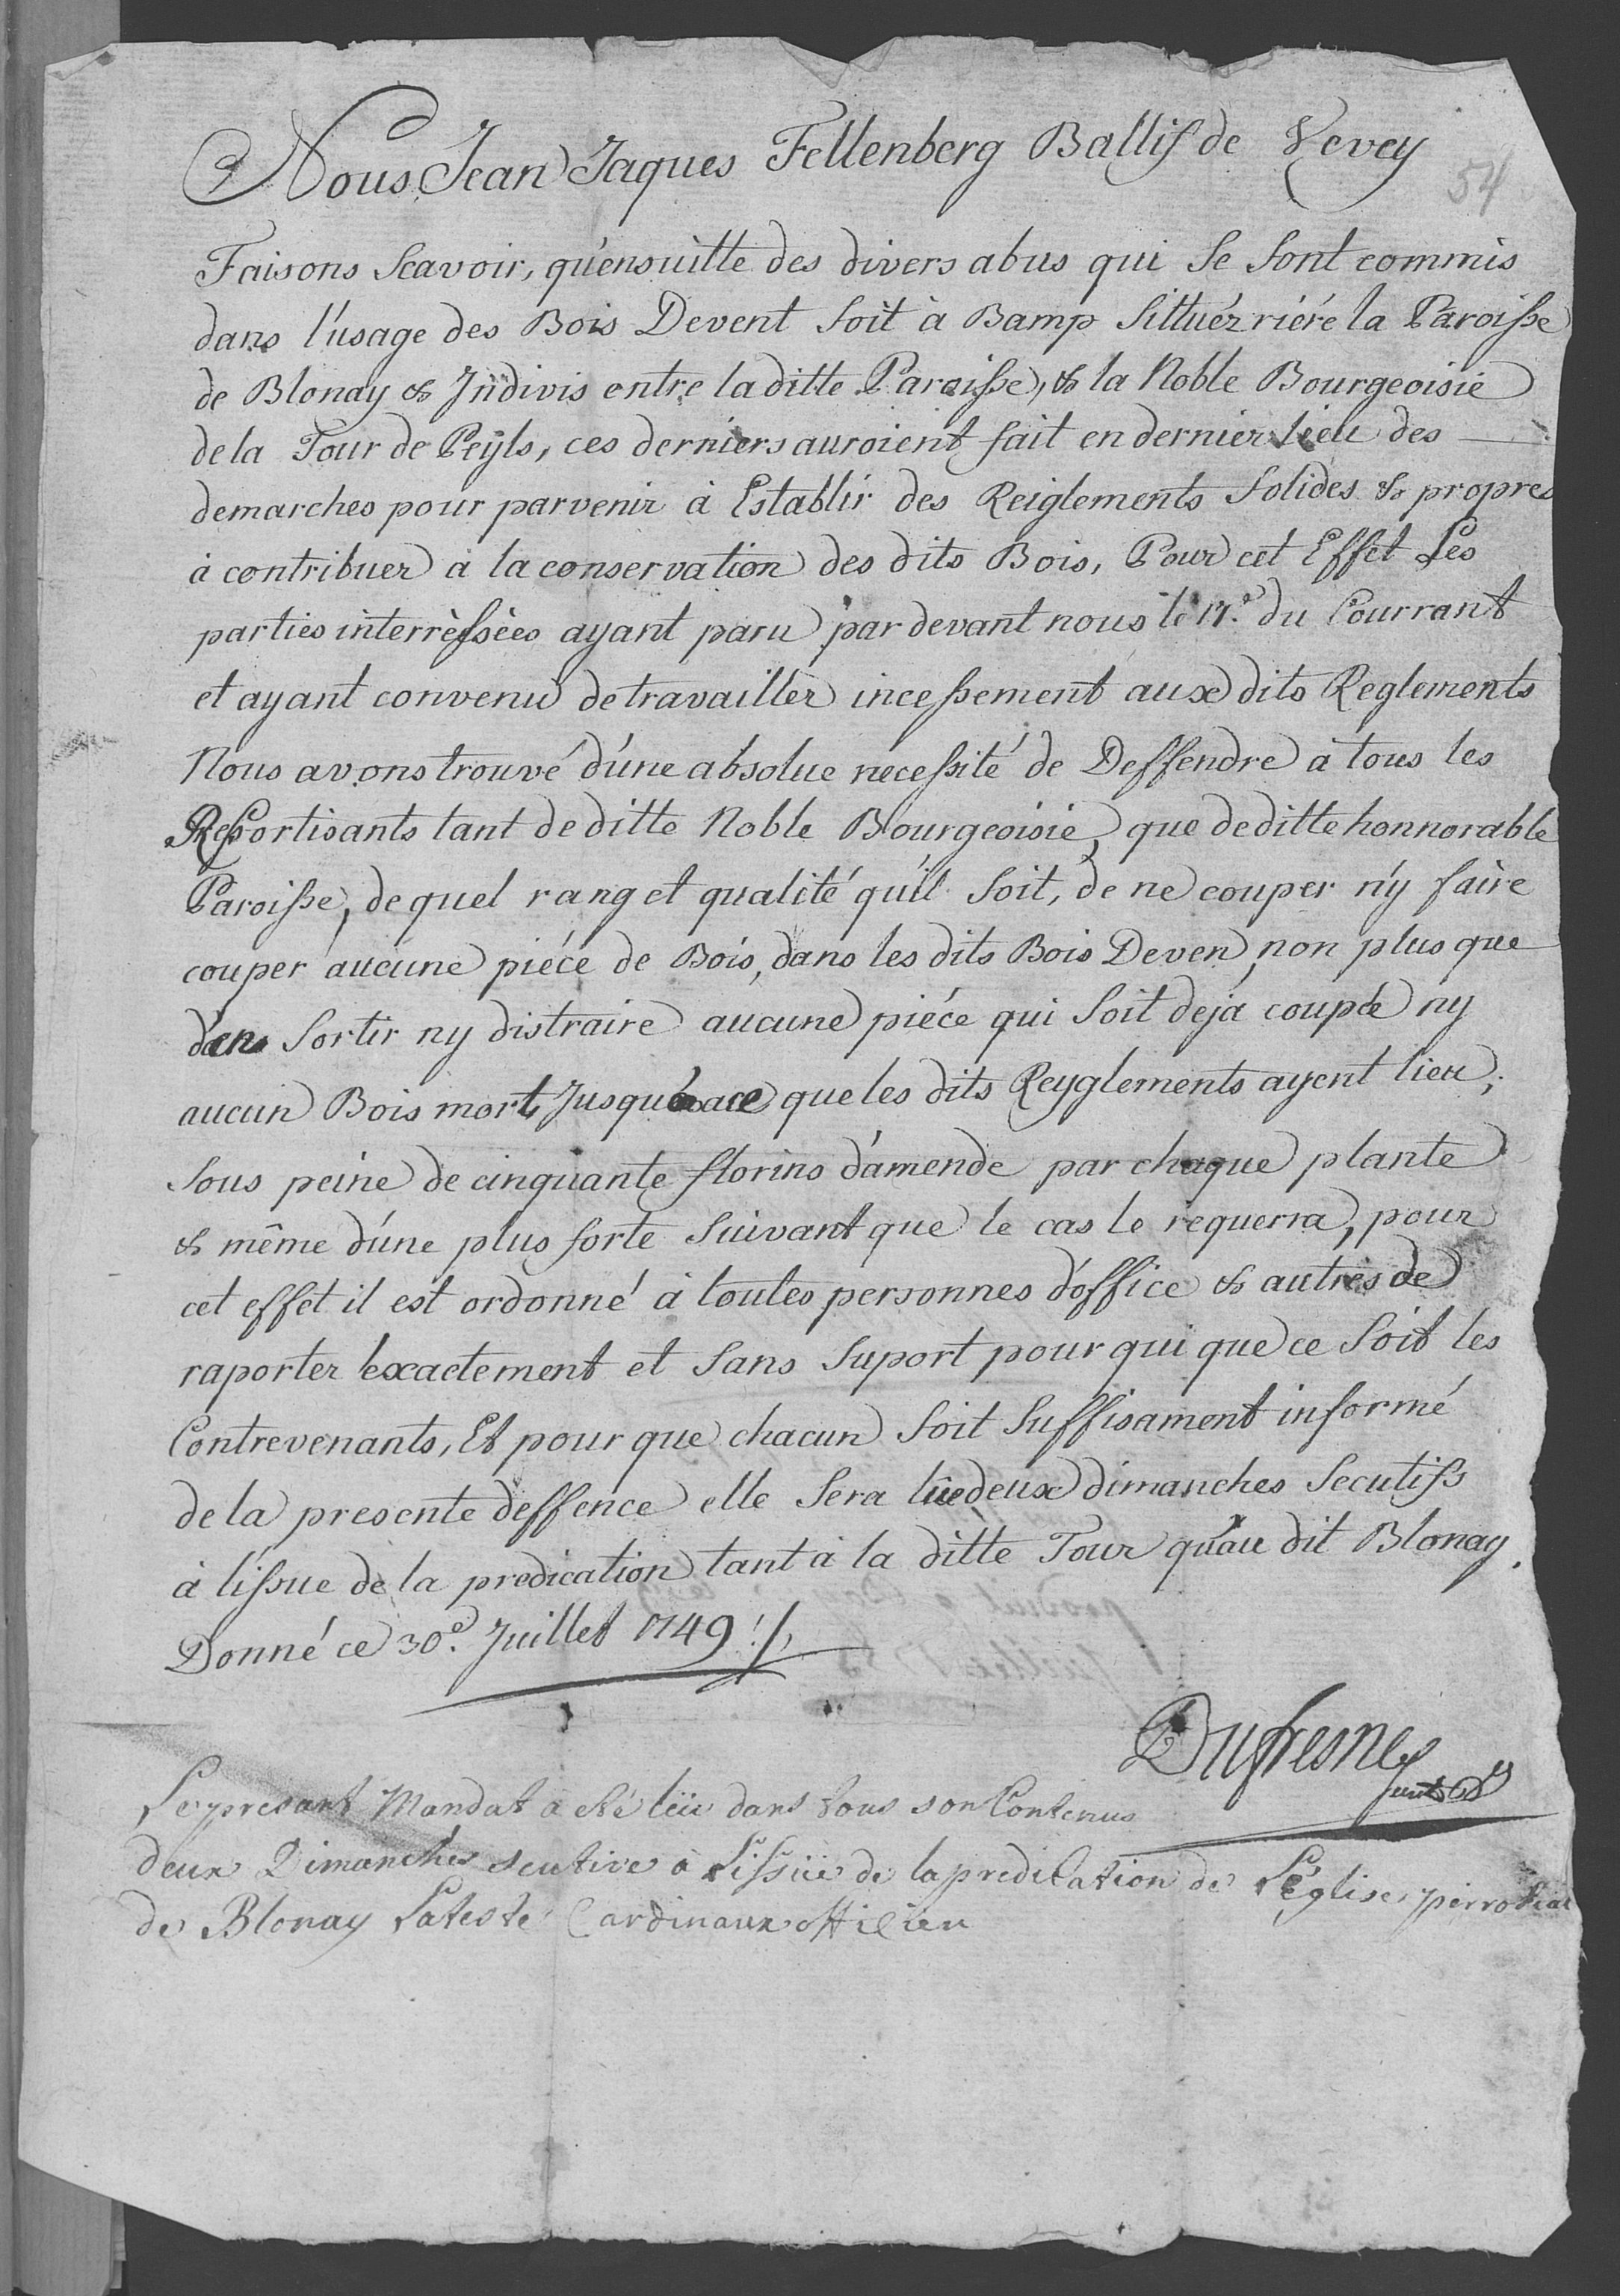 Nous Jean Jaques Fellenberg Ballif de Vevey
54
Faisons Scavoir, qu'ensuitte des divers abus qui Se Sont commis
dans l'usage des Bois Devent Soit à Bamp Sittuéz riére la Paroisse
de Blonay & Jndivis entre laditte Paroisse, & la Noble Bourgeoisie
de la Tour de Peyls, ces derniers auroient fait en dernier lieu des
demarches pour parvenir à Establir des Reiglements Solides & propres
à contribuer à la conservation des dits Bois, Pour cet Effet Les
parties interrèssèes ayant paru par devant nous le 17.e du Courrant
et ayant convenu de travailler incessement aux dits Reglements
Nous avons trouvé d'une absolue necessité de Deffendre à tous les
Ressortisants tant de ditte Noble Bourgeoisie, que de ditte honnorable
Paroisse, de quel rang et qualité qu'il Soit, de ne couper n'y faire
couper aucune piéce de Bois, dans les dits Bois Deven, non plus que
d'en Sortir ny distraire aucune piéce qui Soit deja coupée ny
aucun Bois mort, Jusqu'à ce que les dits Reyglements ayent lieu;
Sous peine de cinquante florins d'amende par chaque plante
& même d'une plus forte Suivant que le cas le requerra, pour
cet effet il est ordonné à toutes personnes d'office & autres de
raporter exactement et Sans Suport pour qui que ce Soit les
Contrevenants, Et pour que chacun Soit Suffisament informé
de la presente deffence elle Sera lüe deux dimanches Secutifs
à l'issue de la predication tant à la ditte Tour qu'au dit Blonay.
Donné ce 30.e Juillet 1749
Dufresne
Le presant Mandat a eté lëu dans tous son Contenus
deux Dimanches scutive a Lissüe de la predication de L'églises perrosial
de Blonay Lateste Cardinaux offilieu